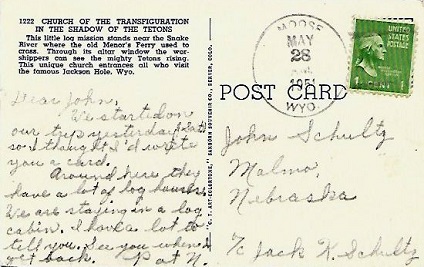 1222 CHURCH OF THE TRANSFIGURATION
IN THE SHADOW OF THE TETONS
This little log mission stands near the Snake
River where the old Menor's Ferry used to
cross. Through its altar window the wor-
shippers can see the mighty Tetons rising.
This unique church entrances all who visit
the famous Jackson Hole, Wyo.
Dear John,
We started on
our trip yesterday (Sat)
so I thought I'd write
you a card.
Around here they
have a lot of log houses.
We are staying in a log
cabin. I have a lot to
tell you. See you when I
get back. Pat N.
MOOSE
MAY
28
1951
WYO.
UNITED STATES
POSTAGE
1 CENT 1
POST CARD
John Schultz
Malmo,
Nebraska
℅ Jack K. Schultz